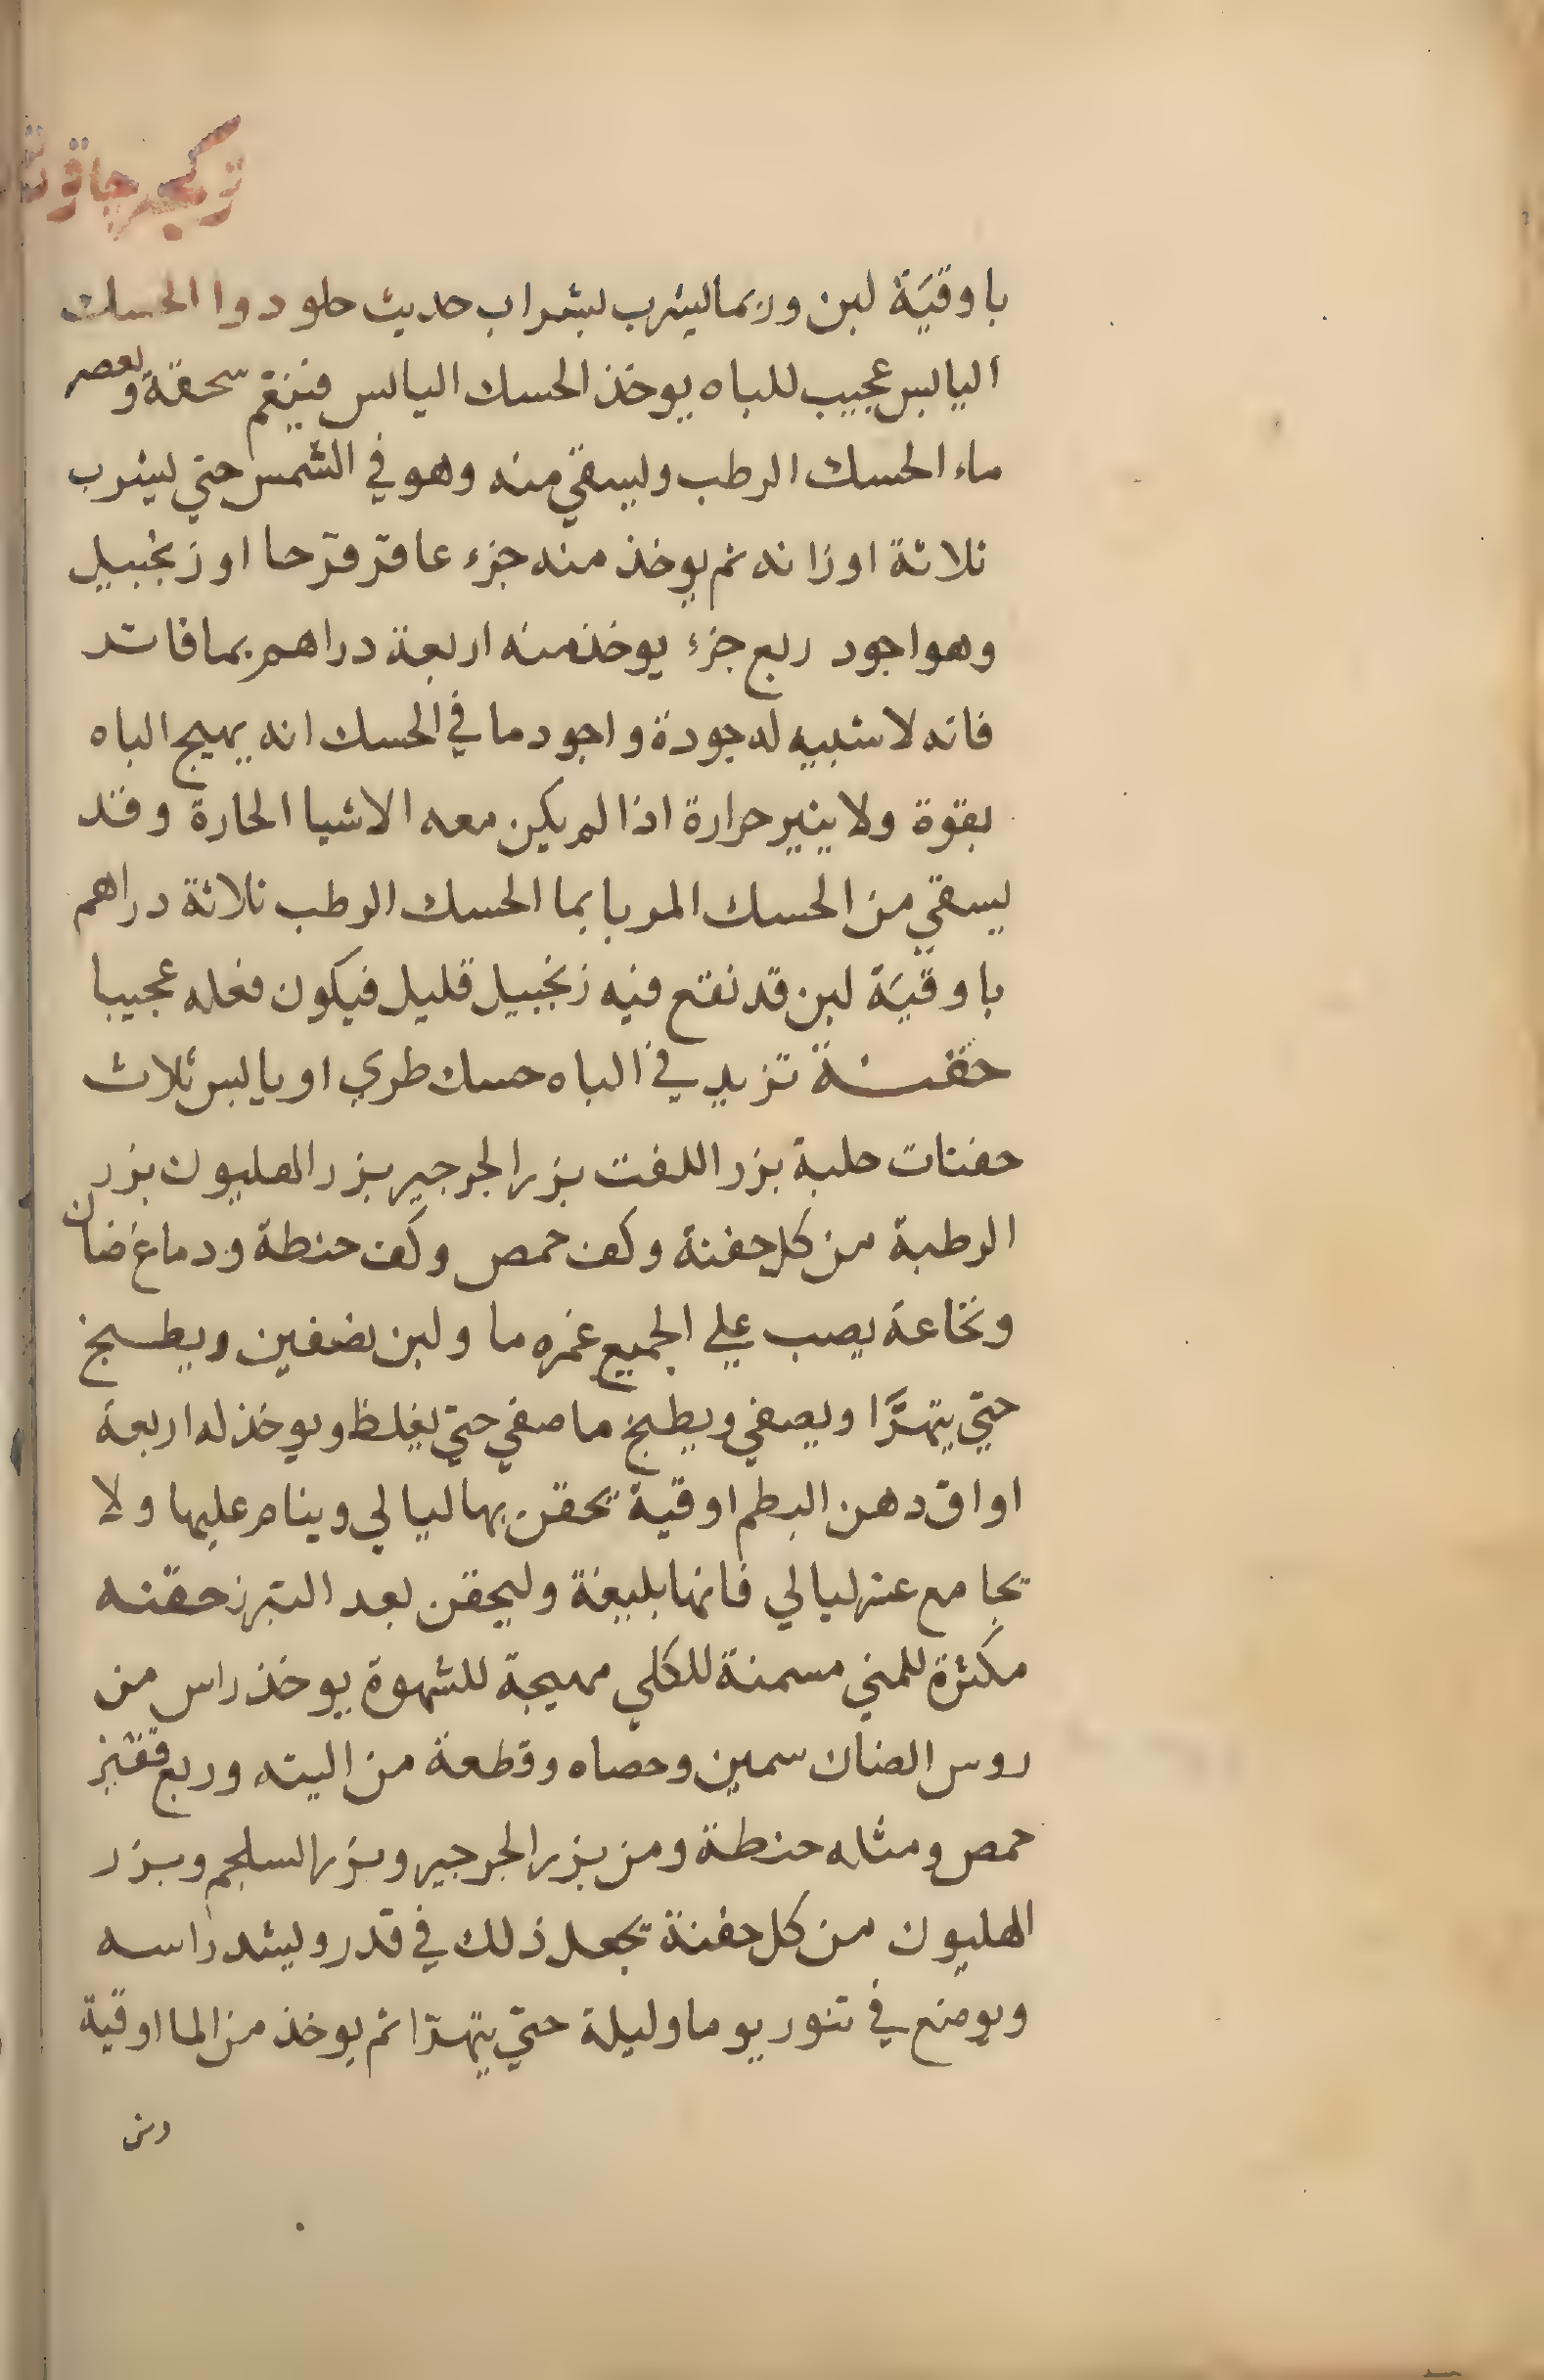 باوقية لبن وربما ليشرب بشراب حديث حلو دوا الحسك
اليابس عجيب للباه يوخذ الحسك اليابس فينعم سحقة ويعصر
ماء الحسك الرطب ويسقي منه وهو في الشمس حتي يشرب
ثلاثة اوزانه ثم يوخذ منه جزء عاقر قرحا او زنجبيل
وهو اجود ربع جزء يوخذ منه اربعة دراهم بما فاتر
فانه لا شبيه له جودة واجود ما في الحسك انه يهيج الباه
بقوة ولا يثير حرارة اذا لم يكن معه الاشيا الحارة وقد
يسقي من الحسك المربا بما الحسك الرطب ثلاثة دراهم
باوقية لبن قد نقع فيه زنجبيل قليل فيكون فعله عجيبا
حقنة تزيد في الباه حسك طري او يابس ثلاث
حفنات حلبة بزر اللفت بزر الجرجير بزر الهليون بزر
الرطبة من كل حفنة وكف حمص وكف حنطة ودماغ ضان
ونخاعة يصب علي الجميع غمره ما ولبن نصفين ويطبخ
حتي يتهرّا ويصفي ويطبخ ما صفي حتي يغلظ ويوخذ له اربعة
اواق دهن البطم اوقية تحقن بها ليالي وينام عليها ولا
يجامع عشر ليالي فانها بليغة وليحقن بعد التبرز حقنه
مكثرة للمني مسمنة للكلي مهيجة للشهوة يوخذ راس من
روس الضان سمين وخصاه وقطعة من اليته وربع قفيز
حمص ومثله حنطة ومن بزر الجرجير وبزر السلجم وبزر
الهليون من كل حفنة تجعل ذلك في قدر ويشد راسه
ويوضع في تنور يوما وليلة حتي يتهرّا ثم يوخذ من الما اوقية
ومن